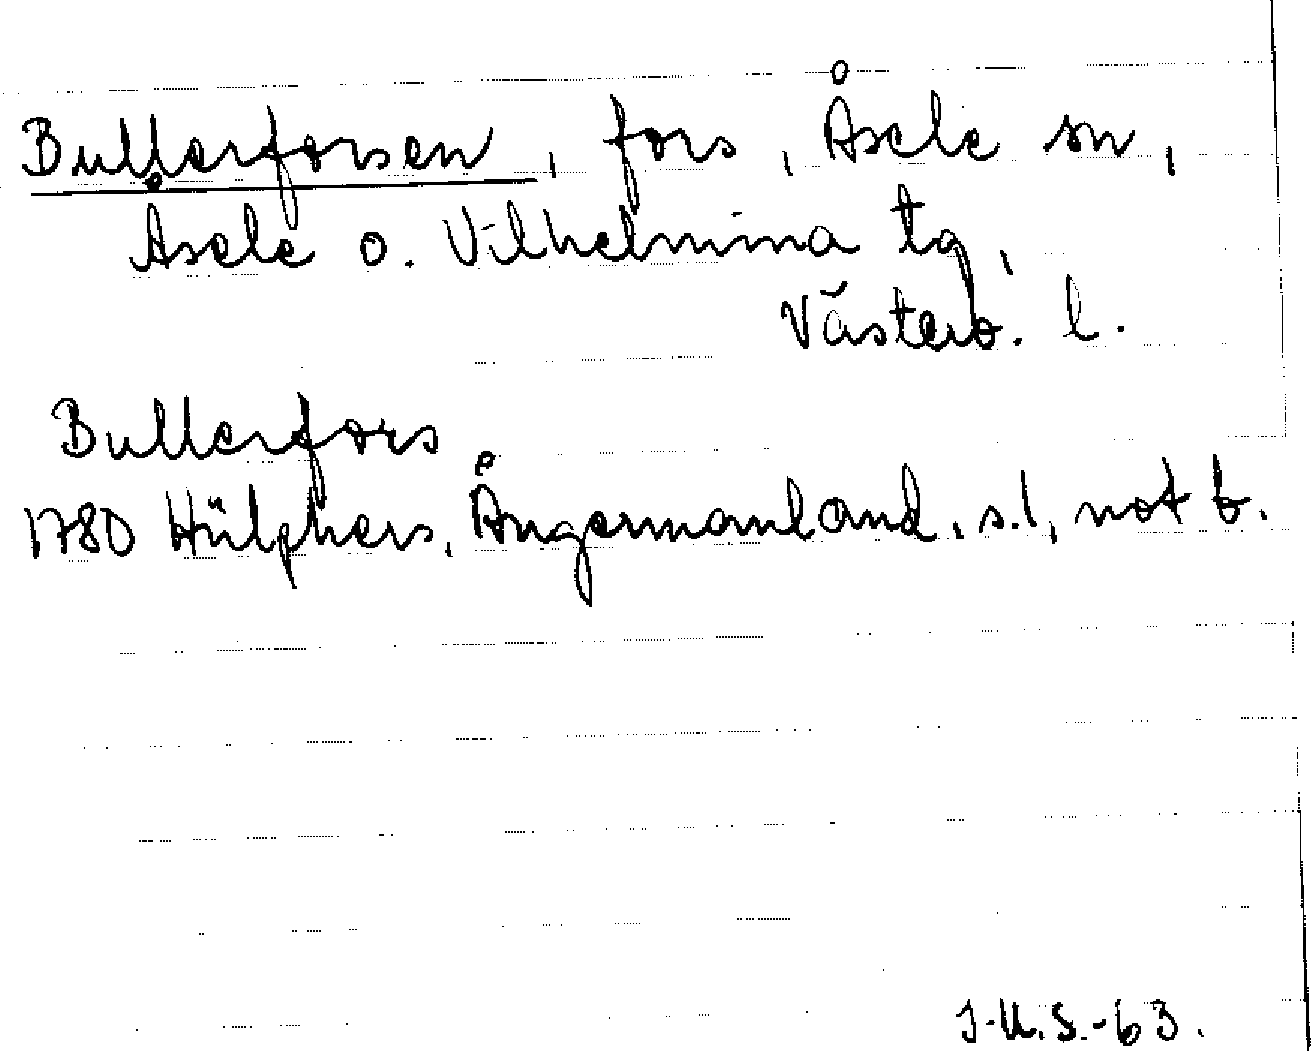 Bullerforsen, fors, Åsele sn,
Åsele o. Vilhelmina tg,
Västerb. l.
Bullerfors
1780 Hülphers, Ångermanland, s. 1, not b.
J-U.S.-63.